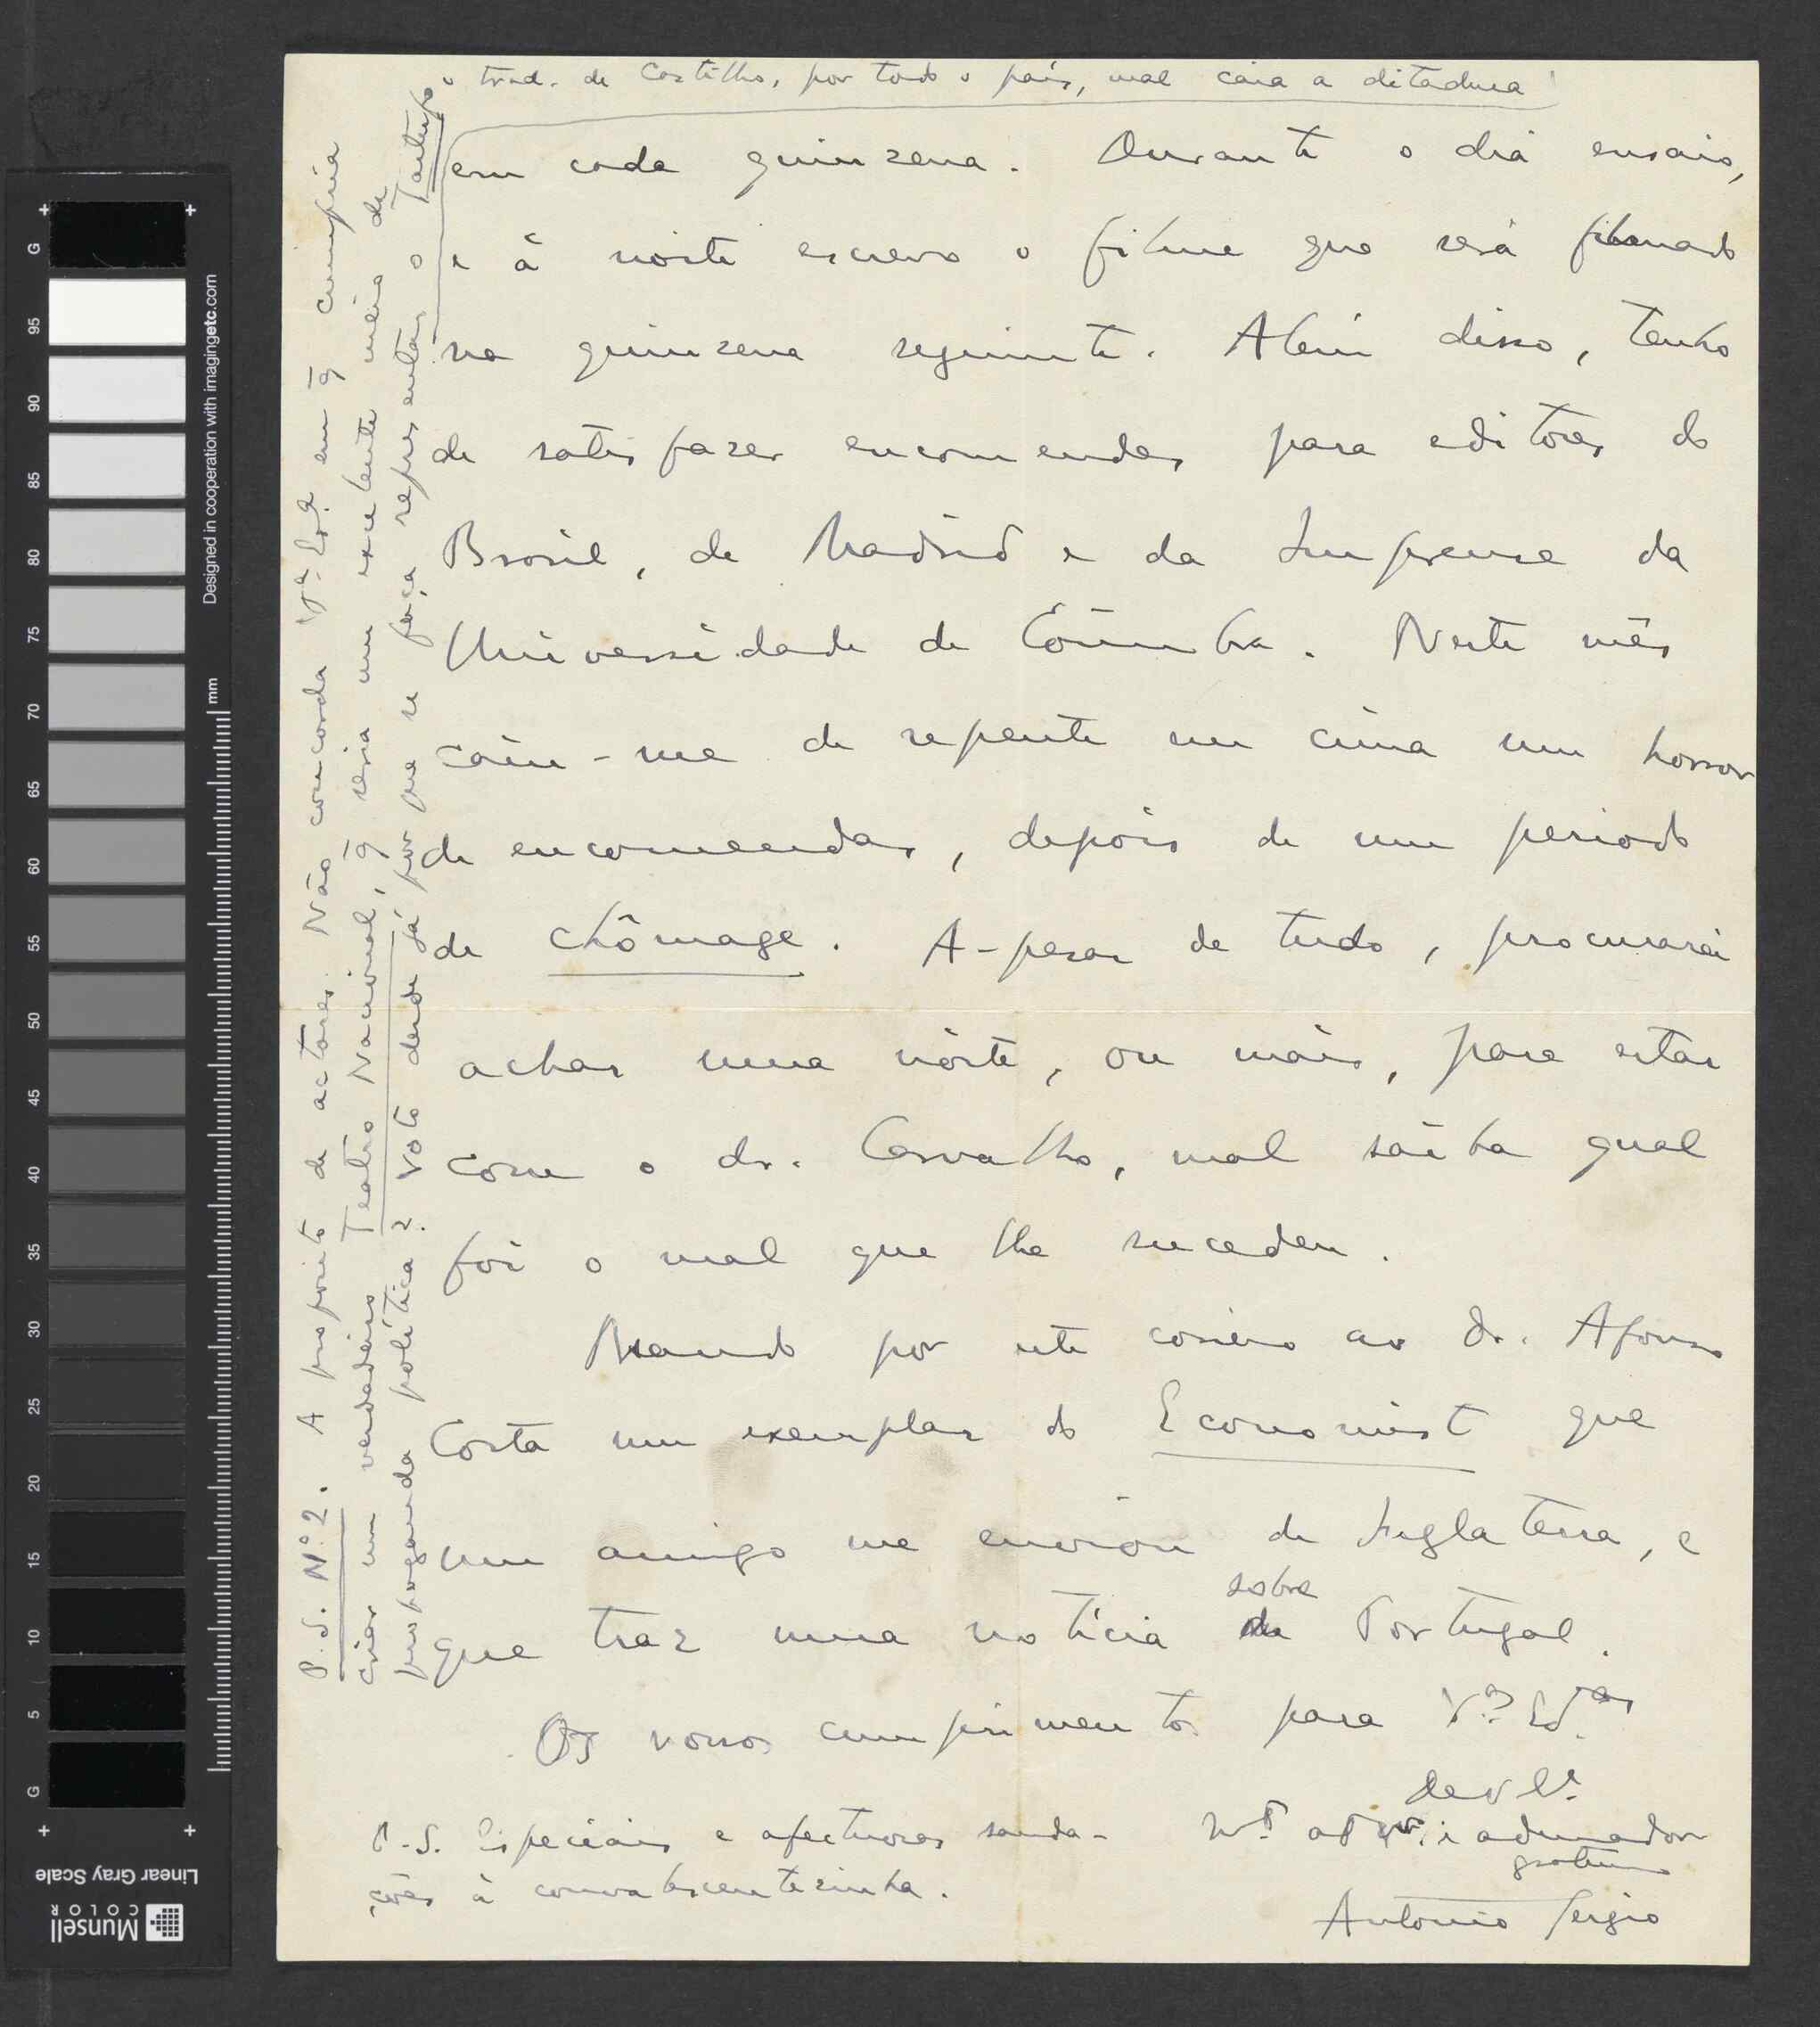 em cada quinzena. Durante o dia ensaio,
e à noite escrevo o filme que será filmado
na quinzena seguinte. Além disso, tenho
de satisfazer encomendas para editores do
Brasil, de Madrid e da Imprensa da
Universidade de Coímbra. Neste mês
caíu-me de repente em cima um horror
de encomendas, depois de um periodo
de chômage. A-pesar de tudo, procurarei
achar uma noite, ou mais, para estar
com o dr. Carvalho, mal sáiba qual
foi o mal que lhe sucedeu.
Mando por este correio ao dr. Afonso
Costa um exemplar do Economist que
um amigo me enviou de Inglaterra, e
que traz uma notícia sobre Portugal.
Os nossos cumprimentos para V.as Ex.as
De V. Ex.a
admirador
gratíssimo
António Sergio
P.S. Especiais e afectuosas sauda-
ções à convalescentezinha.
P.S. Nº 2. A proposito de actores. Não concorda V.a Ex.a em q̄ cumpria
criar um verdadeiro Teatro Nacional, q̄ seria um excelente meio de
propaganda política? Voto desde já por que se faça representar o Tartufo,
trad. de Castilho, por todo o país, mal caia a ditadura!
G 95 90 85 80 75 70 65 60 55 50 45 40 35 30 25 20 15 10 5 G
mm
Designed in cooperation with imagingetc.com
Linear Gray Scale
Munsell
COLOR